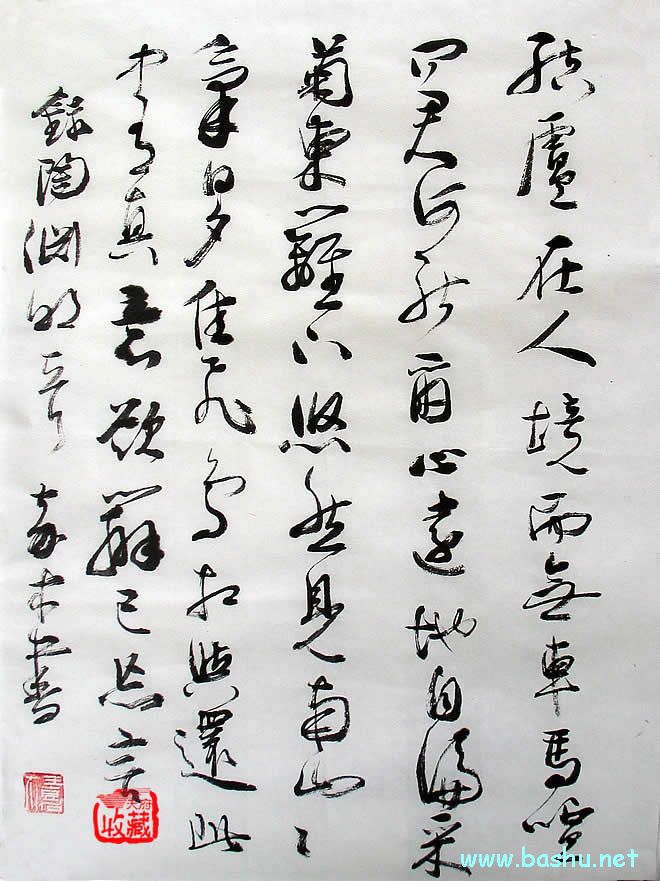 結廬在人境而無車馬喧
問君何能爾心遠地自偏采
菊東籬下悠然見南山々
氣日夕佳飛鳥相與還此
中有真意欲辯已忘言
錄陶淵明 嘉木書
收藏
www.bashu.net